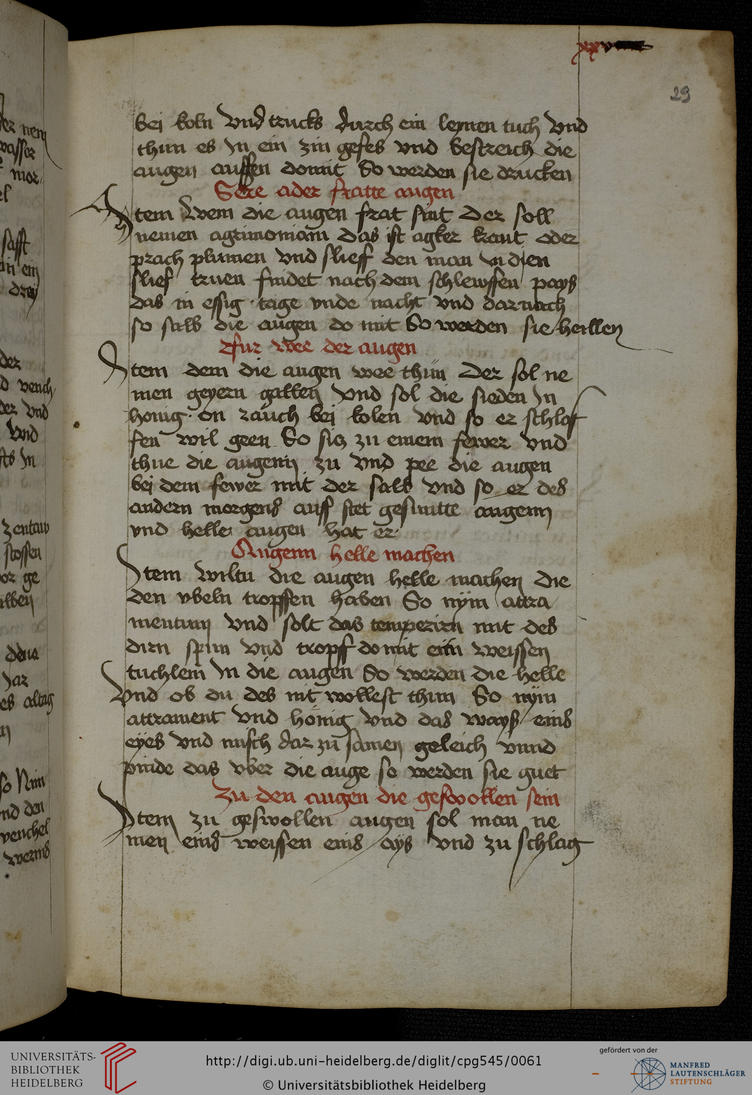 xxv
29
bei koln Vnd trucks durch ein leynen tuch Vnd
thun es In ein zin gefes vnd bestreich die
augen aussen domit So werden sie drucken
Sere ader fratte augen
Item Wem die augen frat sint Der soll
nemen agrimoniam das ist agker kraut oder
prach plumen vnd slieff den man In dien
slief truen findet nach dem schlewffen pays
das in essig tage vnde nacht vnd darnach
so salb die augen do mit So werden sie heillen
Fur wee der augen
Item dem die augen wee thun Der sol ne
men geyern gallen Vnd sol die sieden In
honig on rauch bei kolen vnd so er schlof
fen wil geen So sicz zu einem fewer vnd
thue die augenn zu vnd pee die augen
bei dem fewer mit der salb vnd so er des
andern morgens auff stet gesunte augenn
vnd helle augen hat er
Augenn helle machen
Item wiltu die augen helle machen die
den vbeln tropffen haben So nym attra
mentum vnd solt das temperirn mit des
dirn spun vnd tropf do mit ein weissen
tuchlein In die augen So werden die helle
Vnd ob du des nit wollest thun So nym
attrament vnd honig vnd das wayß eins
eyes vnd misch dar zu samen geleich vnnd
pinde das vber die auge so werden sie guet
Zu den augen die geswollen sein
Item zu geswollen augen sol man ne
men eins weissen eins ays vnd zu schlag
UNIVERSITÄTS-
BIBLIOTHEK
HEIDELBERG
http://digi.ub.uni-heidelberg.de/diglit/cpg545/0061
© Universitätsbibliothek Heidelberg
gefördert von der
MANFRED
LAUTENSCHLÄGER
STIFTUNG